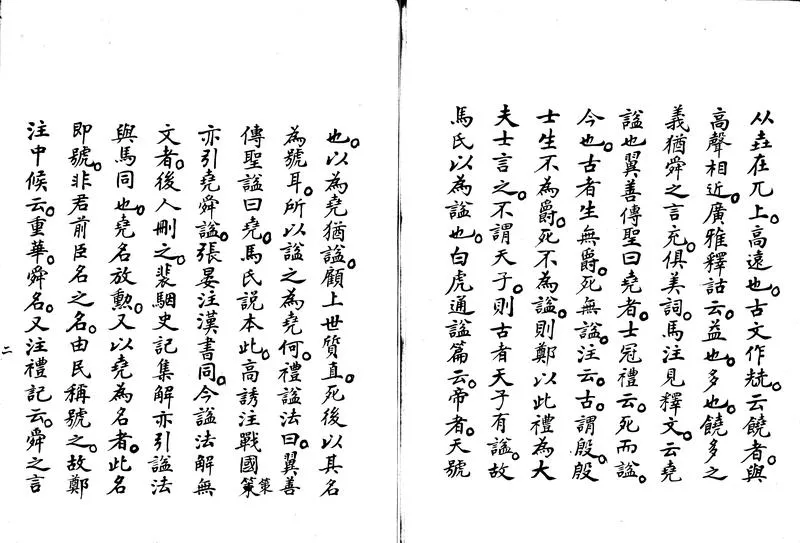 从垚在兀上。高遠也。古文作𡋰。云饒者。與
高聲相近。廣雅釋詁云。益也。多也。饒多之
義猶舜之言充。俱美詞。馬注見釋文。云堯
謚也。翼善傳聖曰堯者。士冠禮云。死而謚。
今也。古者生無爵。死無謚。注云。古謂殷。殷
士生不為爵。死不為謚。則鄭以此禮為大
夫士言之。不謂天子。則古者天子有謚。故
馬氏以為謚也。白虎通謚篇云。帝者。天號
也。以為堯猶謚。顧上世質直。死後以其名
為號耳。所以謚之為堯何。禮謚法曰。翼善
傳聖謚曰堯。馬氏說本此。高誘注戰國策
策
亦引堯舜謚。張晏注漢書同。今謚法解無
文者。後人刪之。裴駰史記集解亦引謚法
與馬同也。堯名放勳。又以堯為名者。此名
即號。非君前臣名之名。由民稱號之。故鄭
注中候云。重華。舜名。又注禮記云。舜之言
二